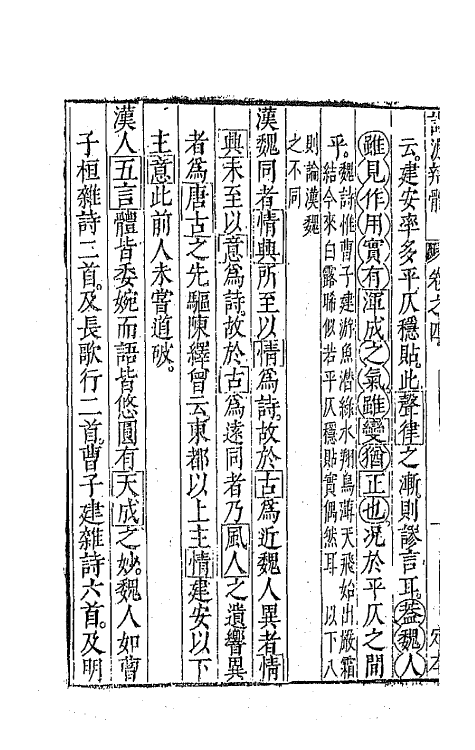 詩源辯體 卷之四
云建安率多平仄穩貼此聲律之漸則謬言耳蓋魏人
雖見作用實有渾成之氣雖變猶正也況於平仄之間
乎魏詩惟曹子建游魚潛綠水翔鳥薄天飛始出嚴霜
結今來白露晞似若平仄穩貼實偶然耳 以下八
則論漢魏
之不同
漢魏同者情興所至以情為詩故於古為近魏人異者情
興未至以意為詩故於古為遠同者乃風人之遺響異
者為唐古之先驅陳繹曾云東都以上主情建安以下
主意此前人未嘗道破
漢人五言體皆委婉而語皆悠圓有天成之妙魏人如曹
子桓雜詩二首及長歌行二首曹子建雜詩六首及明